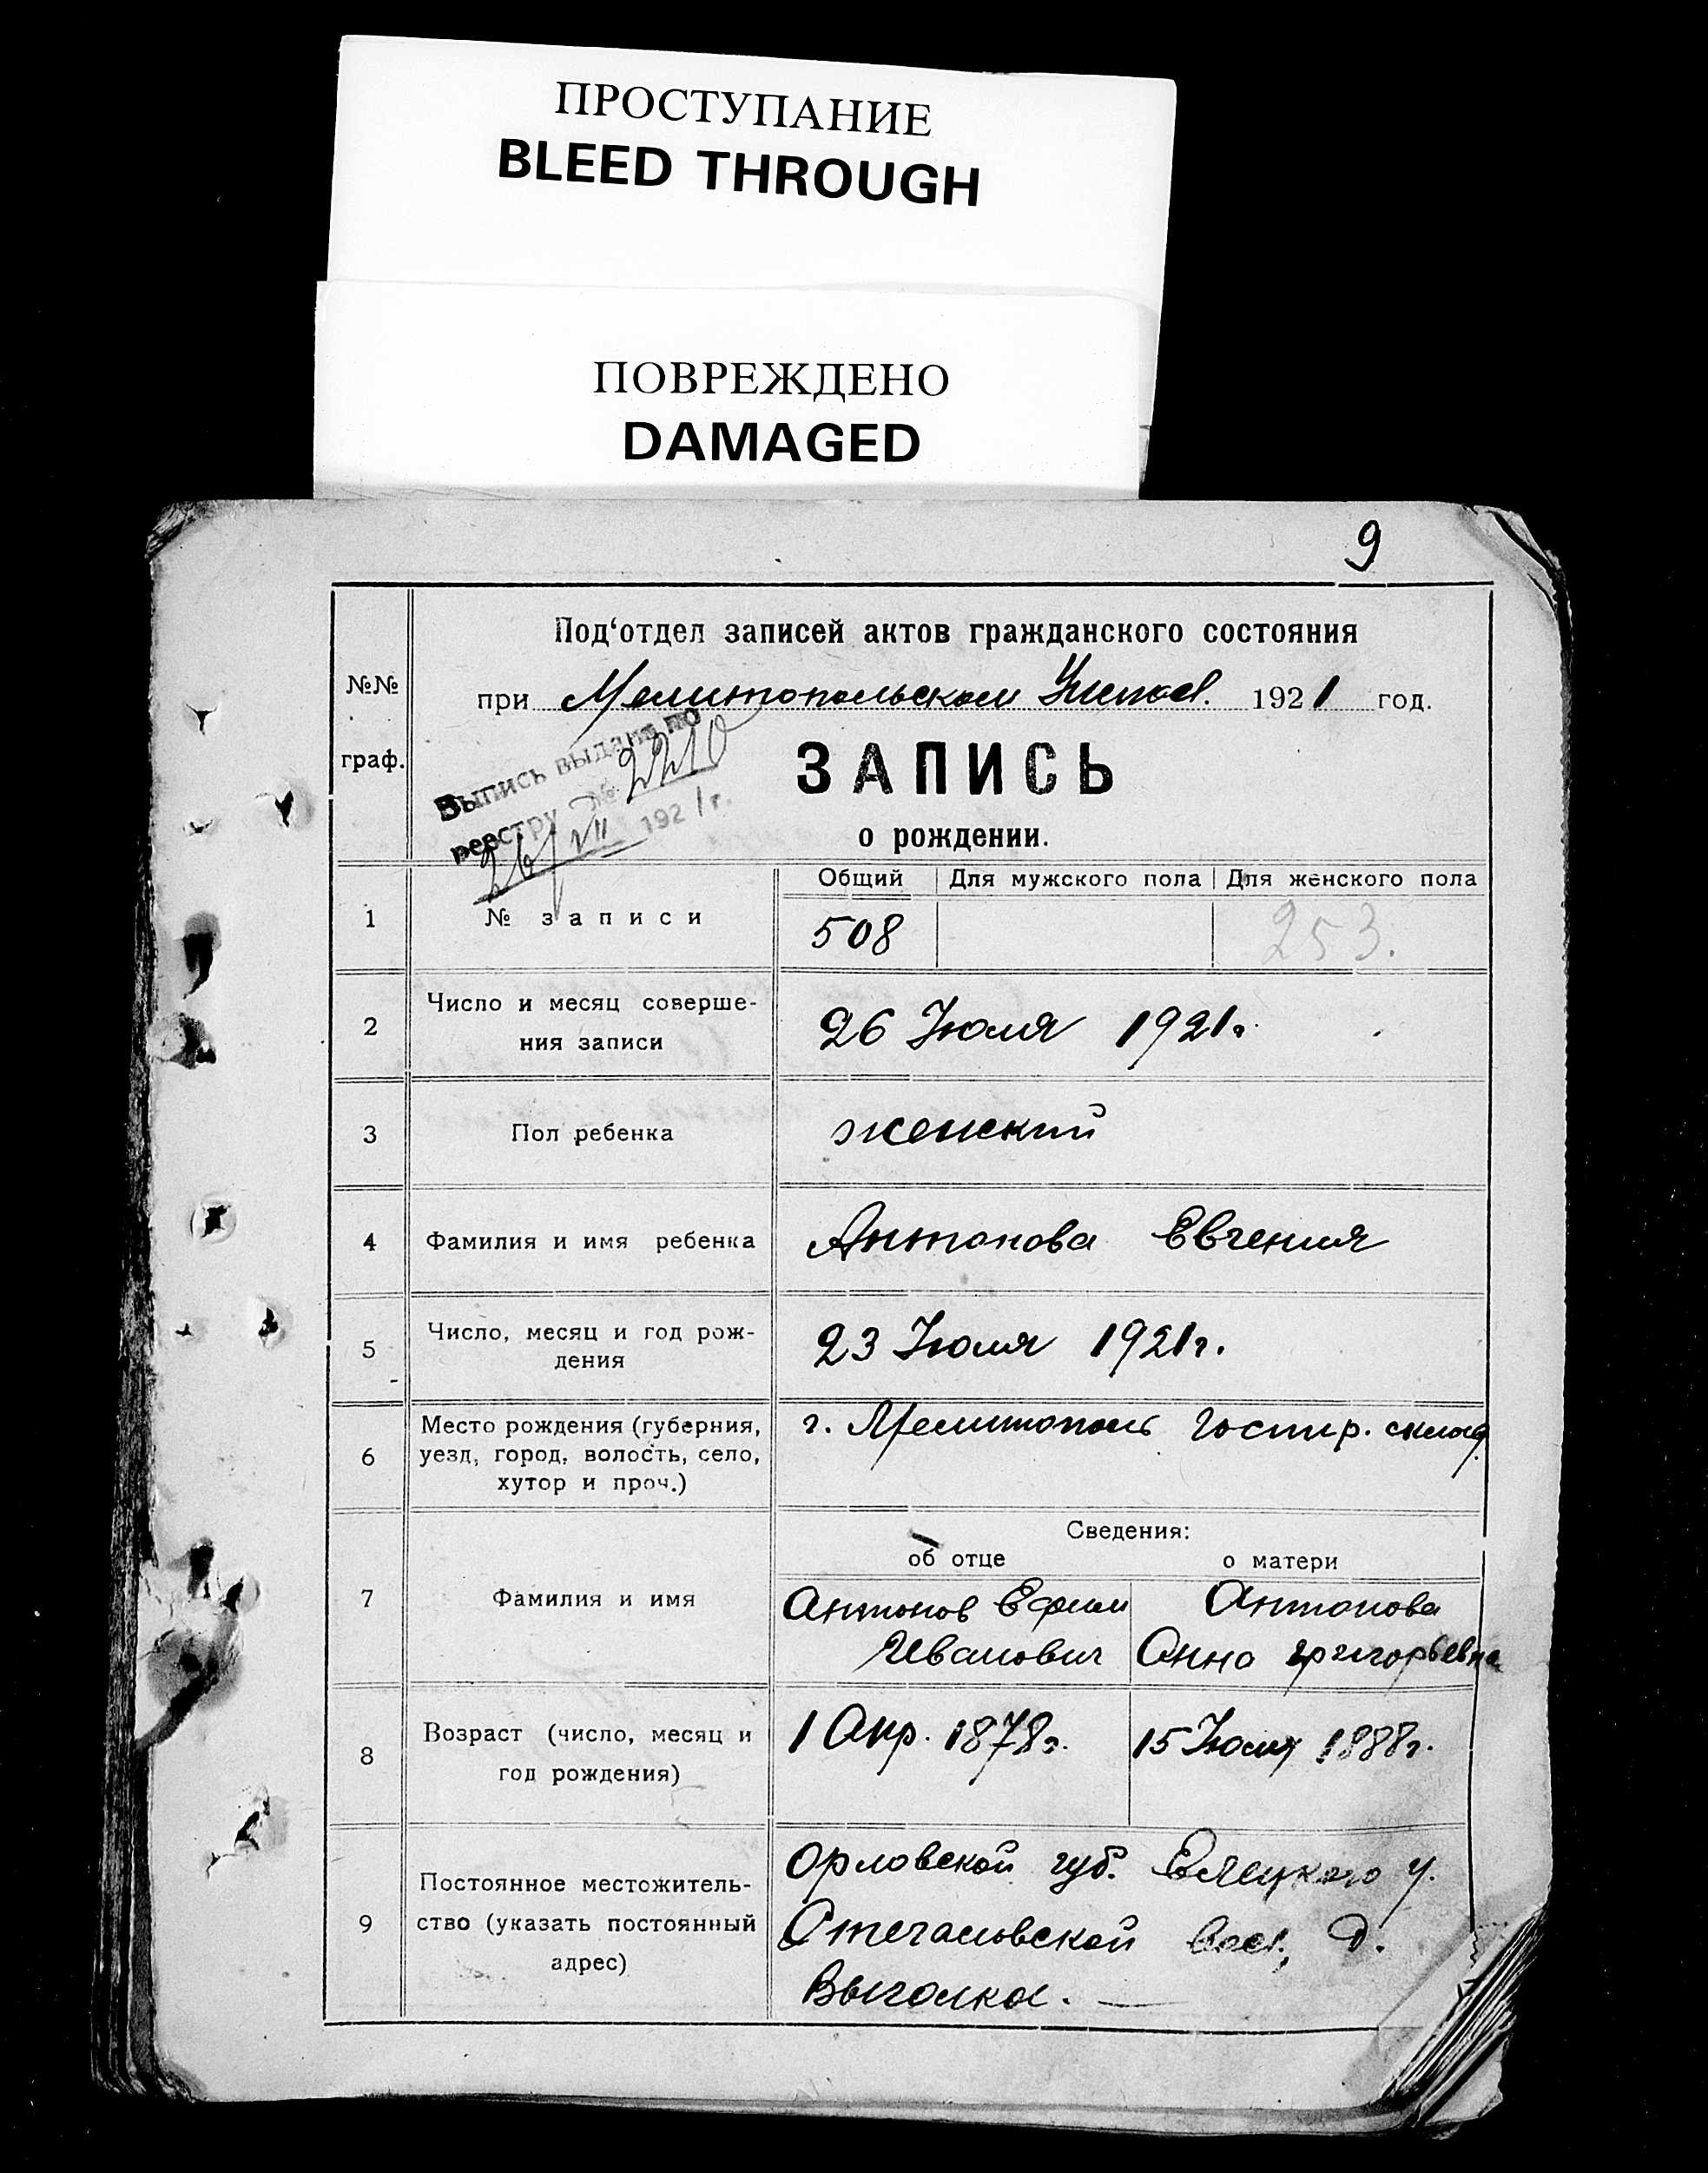 ПРОСТУПАНИЕ
BLEED THROUGH
ПОВРЕЖДЕНО
DAMAGED
9
№№ граф.
Под‘отдел записей актов гражданского состояния
при Мелитопольском 1921 год.
Выпись выдана по
реестру № 2210
26/VII 1921 г.
ЗАПИСЬ
о рождении.
Общий Для мужского пола Для женского пола
1 № записи 508 253.
2 Число и месяц соверше-
ния записи 26 Июля 1921г.
3 Пол ребенка женский
4 Фамилия и имя ребенка Антонова Евгения
5 Число, месяц и год рож-
дения 23 Июля 1921г.
6 Место рождения (губерния, г. Мелитополь склад
уезд, город, волость, село,
хутор и проч.)
Сведения:
об отце о матери
7 Фамилия и имя Антонов Ефим Антонова
Иванович Анна Григорьевна
8 Возраст (число, месяц и
год рождения) 1 Апр. 1878г. 15 1888г.
9 Постоянное местожитель-
ство (указать постоянный
адрес)
Орловской губ. Елецкого у.
Стегаловской вол., д.